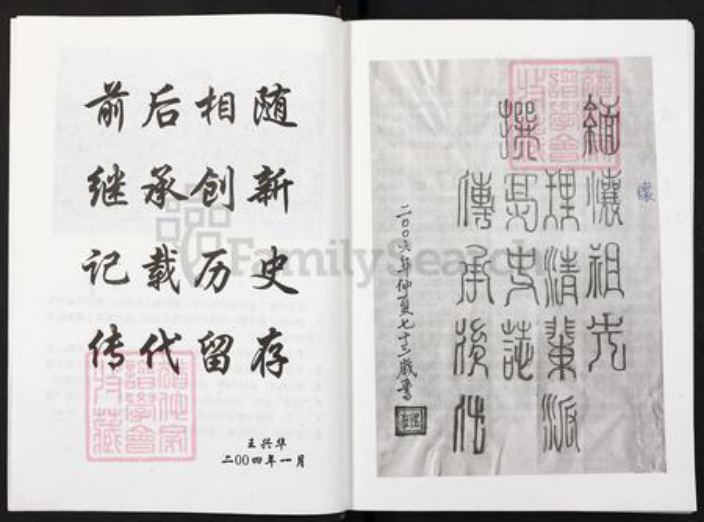 前后相随
继承创新
记载历史
传代留存
王兴华
二00四年一月
缅瀼祖先
理清辈派
撰写史誌
傳承後世
二00六年仲夏七十三歲書
懷
FamilySearch